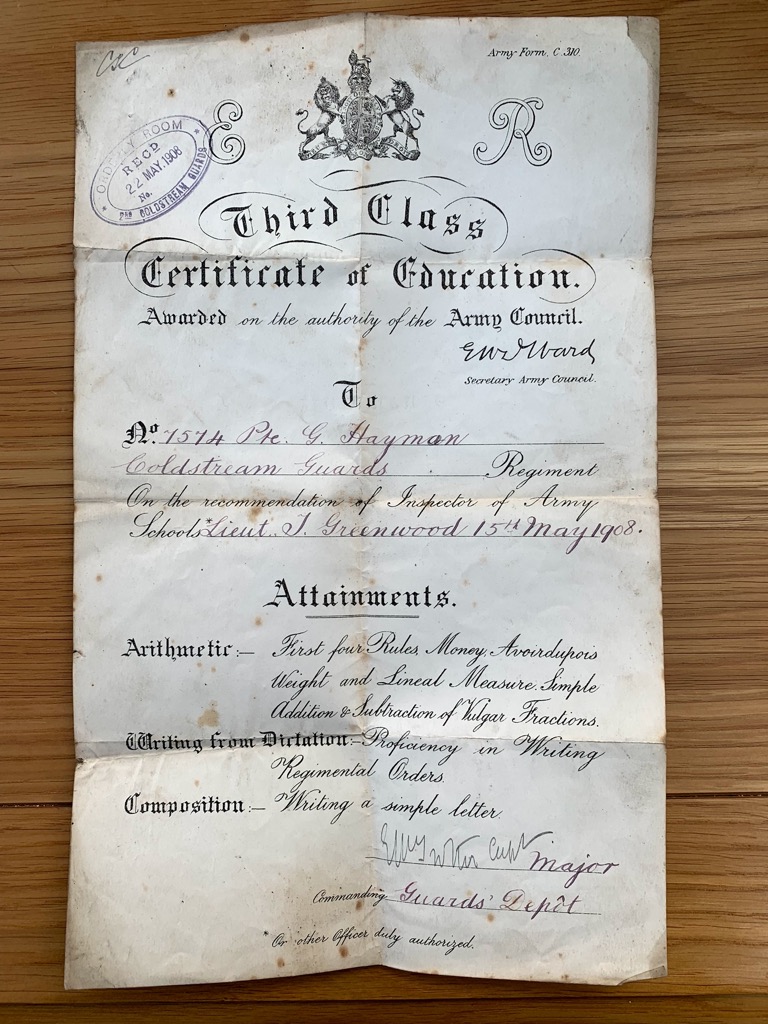 Army Form, C. 310.
E R
ORDERLY ROOM
RECD
22 MAY. 1908
No.
COLDSTREAM GUARDS
Third Class
Certificate of Education.
Awarded on the authority of the Army Council.
EWD Ward
Secretary Army Council.
To
No. 7574 Pte. G. Hayman
Coldstream Guards Regiment
On the recommendation of Inspector of Army
Schools * Lieut. J. Greenwood 15th May 1908.
Attainments.
Arithmetic:— First four Rules, Money, Avoirdupois
Weight and Lineal Measure, Simple
Addition & Subtraction of Vulgar Fractions.
Writing from Dictation:— Proficiency in Writing
Regimental Orders.
Composition:— Writing a simple letter.
Capt Major
Commanding Guards' Depôt
Or other Officer duly authorized.